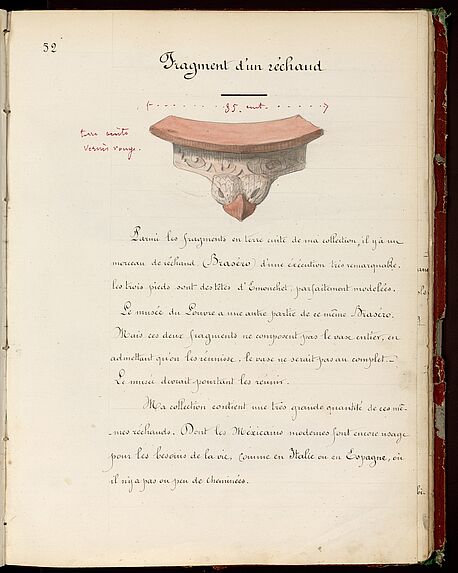 52
Fragment d'un réchaud
35. cent.
terre cuite
vernis rouge.
Parmi les fragments en terre cuite de ma collection, il y'a un
morceau de réchaud (Braséro) d'une exécution très remarquable.
les trois pieds sont des têtes d'Emouchet, parfaitement modelées.
Le musée du Louvre a une autre partie de ce même Braséro.
Mais ces deux fragments ne composent pas le vase entier, en
admettant qu'on les réunisse, le vase ne serait pas au complet. –
Le musée devrait pourtant les réunir.
Ma collection contient une très grande quantité de ces mê-
mes réchauds. Dont les Méxicains modernes font encore usage
pour les besoins de la vie, comme en Italie ou en Espagne, où
il n'y a pas ou peu de cheminées.